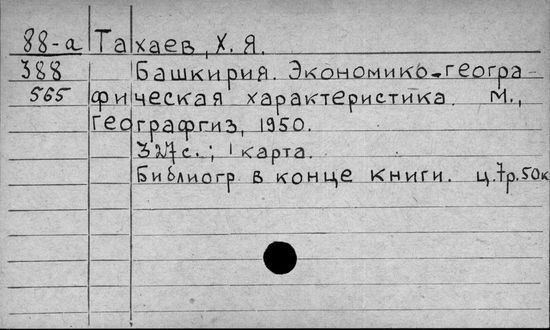 88-а Тахаев, Х. Я.
388 Башкирия. Экономико-геогра-
565 фическая характеристика. М.,
Географгиз, 1950.
327 с.; 1 карта.
Библиогр в конце книги. ц. 7р. 50к